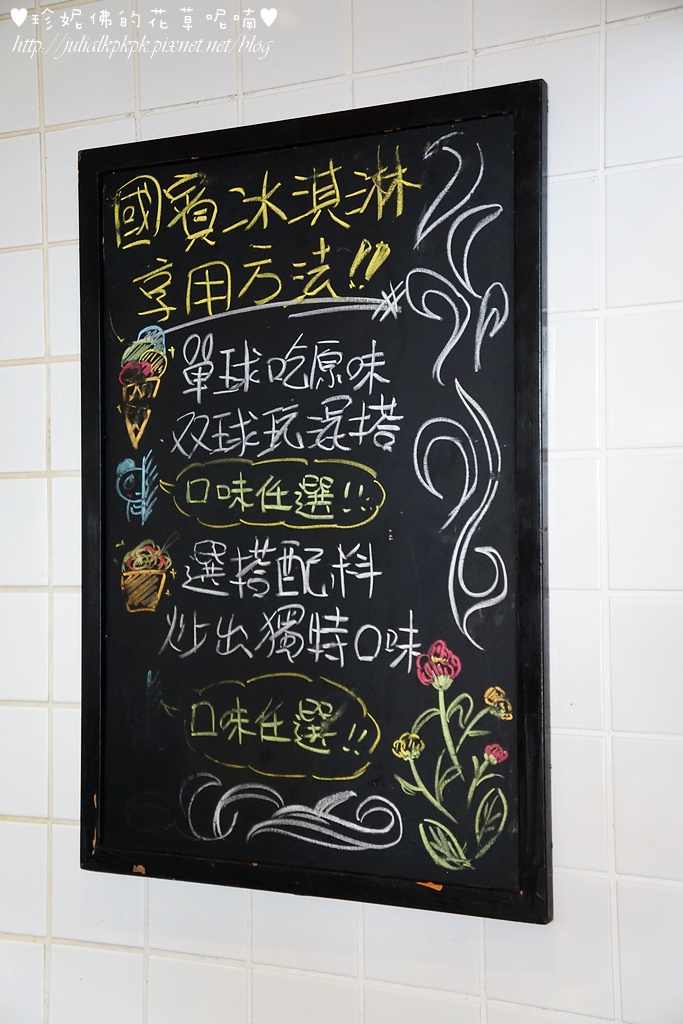 ♥珍妮佛的花草呢喃♥
http://julialkpkpk.pixnet.net/blog
國賓冰淇淋
享用方法!!
單球吃原味
双球玩混搭
口味任選!!
選搭配料
炒出獨特口味
口味任選!!